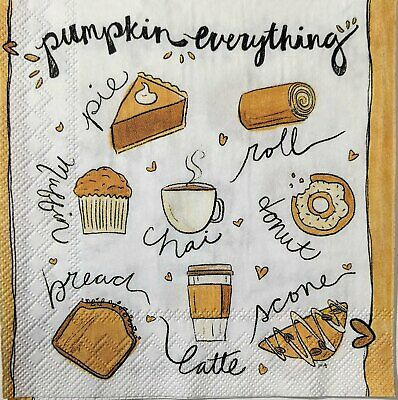 pumpkin everything
pie
roll
Muffin
chai
donut
bread
latte
scone